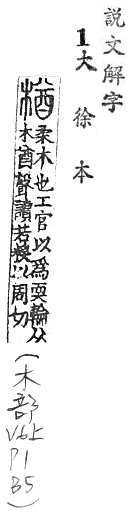 説文解字
1大徐本
楢
柔木也工官以為耎輪从
木酋聲讀若糗以周切
(木部
V6上
P1
B5)